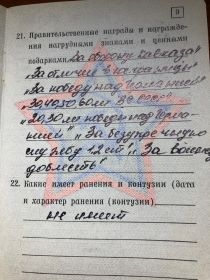 9
21. Правительственные награды и награжде-
ния нагрудными знаками и ценными
подарками „За оборону Кавказа"
„За отличие в
„За победу над Германией"
„20 лет победы над Герма-
нией" „За безупречную
службу 12 лет", „За воинск.
доблесть"
22. Какие имеет ранения и контузии (дата
и характер ранения (контузии)
не имеет